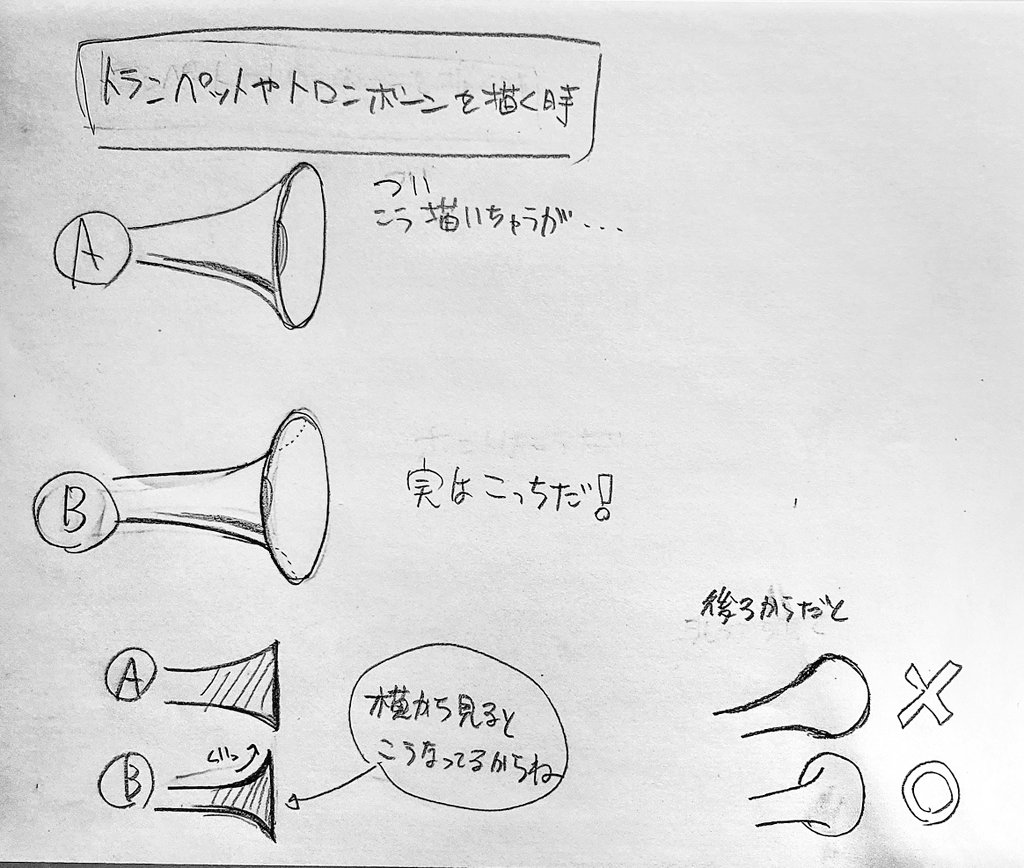 トランペットやトロンボーンを描く時
つい
こう描いちゃうが...
A
B
実はこっちだ!
後ろからだと
A
B
ぐいっ
横から見ると
こうなってるからね